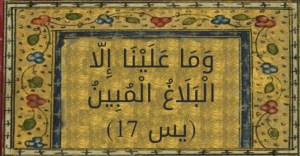 وَمَا عَلَيْنَا إِلَّا
الْبَلَاغُ الْمُبِينُ
(يس 17)